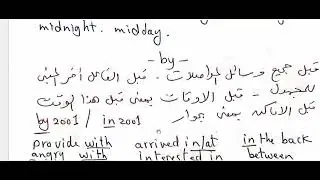 midnight. midday.
- by -
قبل جميع وسائل المواصلات. قبل الفاعل آخر المبنى
للمجهول - قبل الاوقات بمعنى قبل هذا الوقت
قبل الأماكن بمعنى جوار by 2001 / in 2001
provide with arrived in/at in the back
angry with interested in between